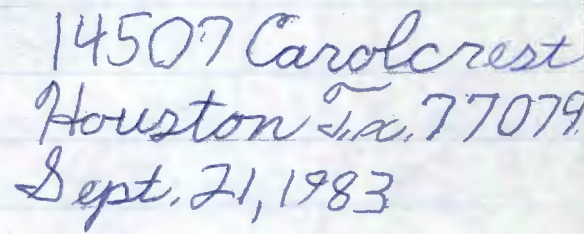 14507 Carolcrest
Houston Tx. 77079
Sept. 21, 1983